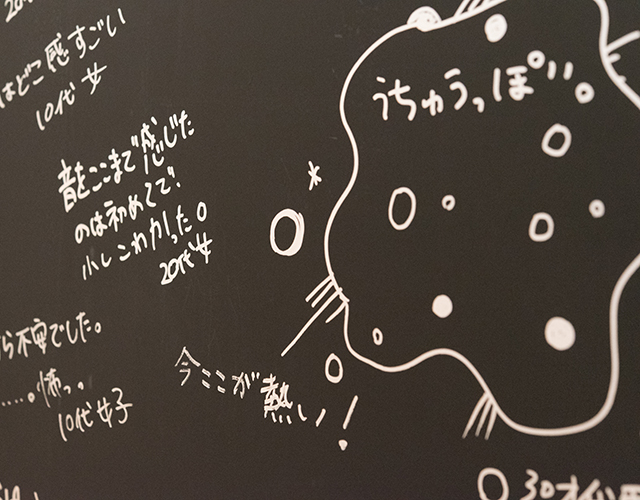 はどこ感すごい
10代 女
音をここまで感じた
のは初めてで!
少しこわかった。
20代女
うちゅうっぽい
ら不安でした。
……。怖っ。
10代女子
今ここが熱い!
30才位